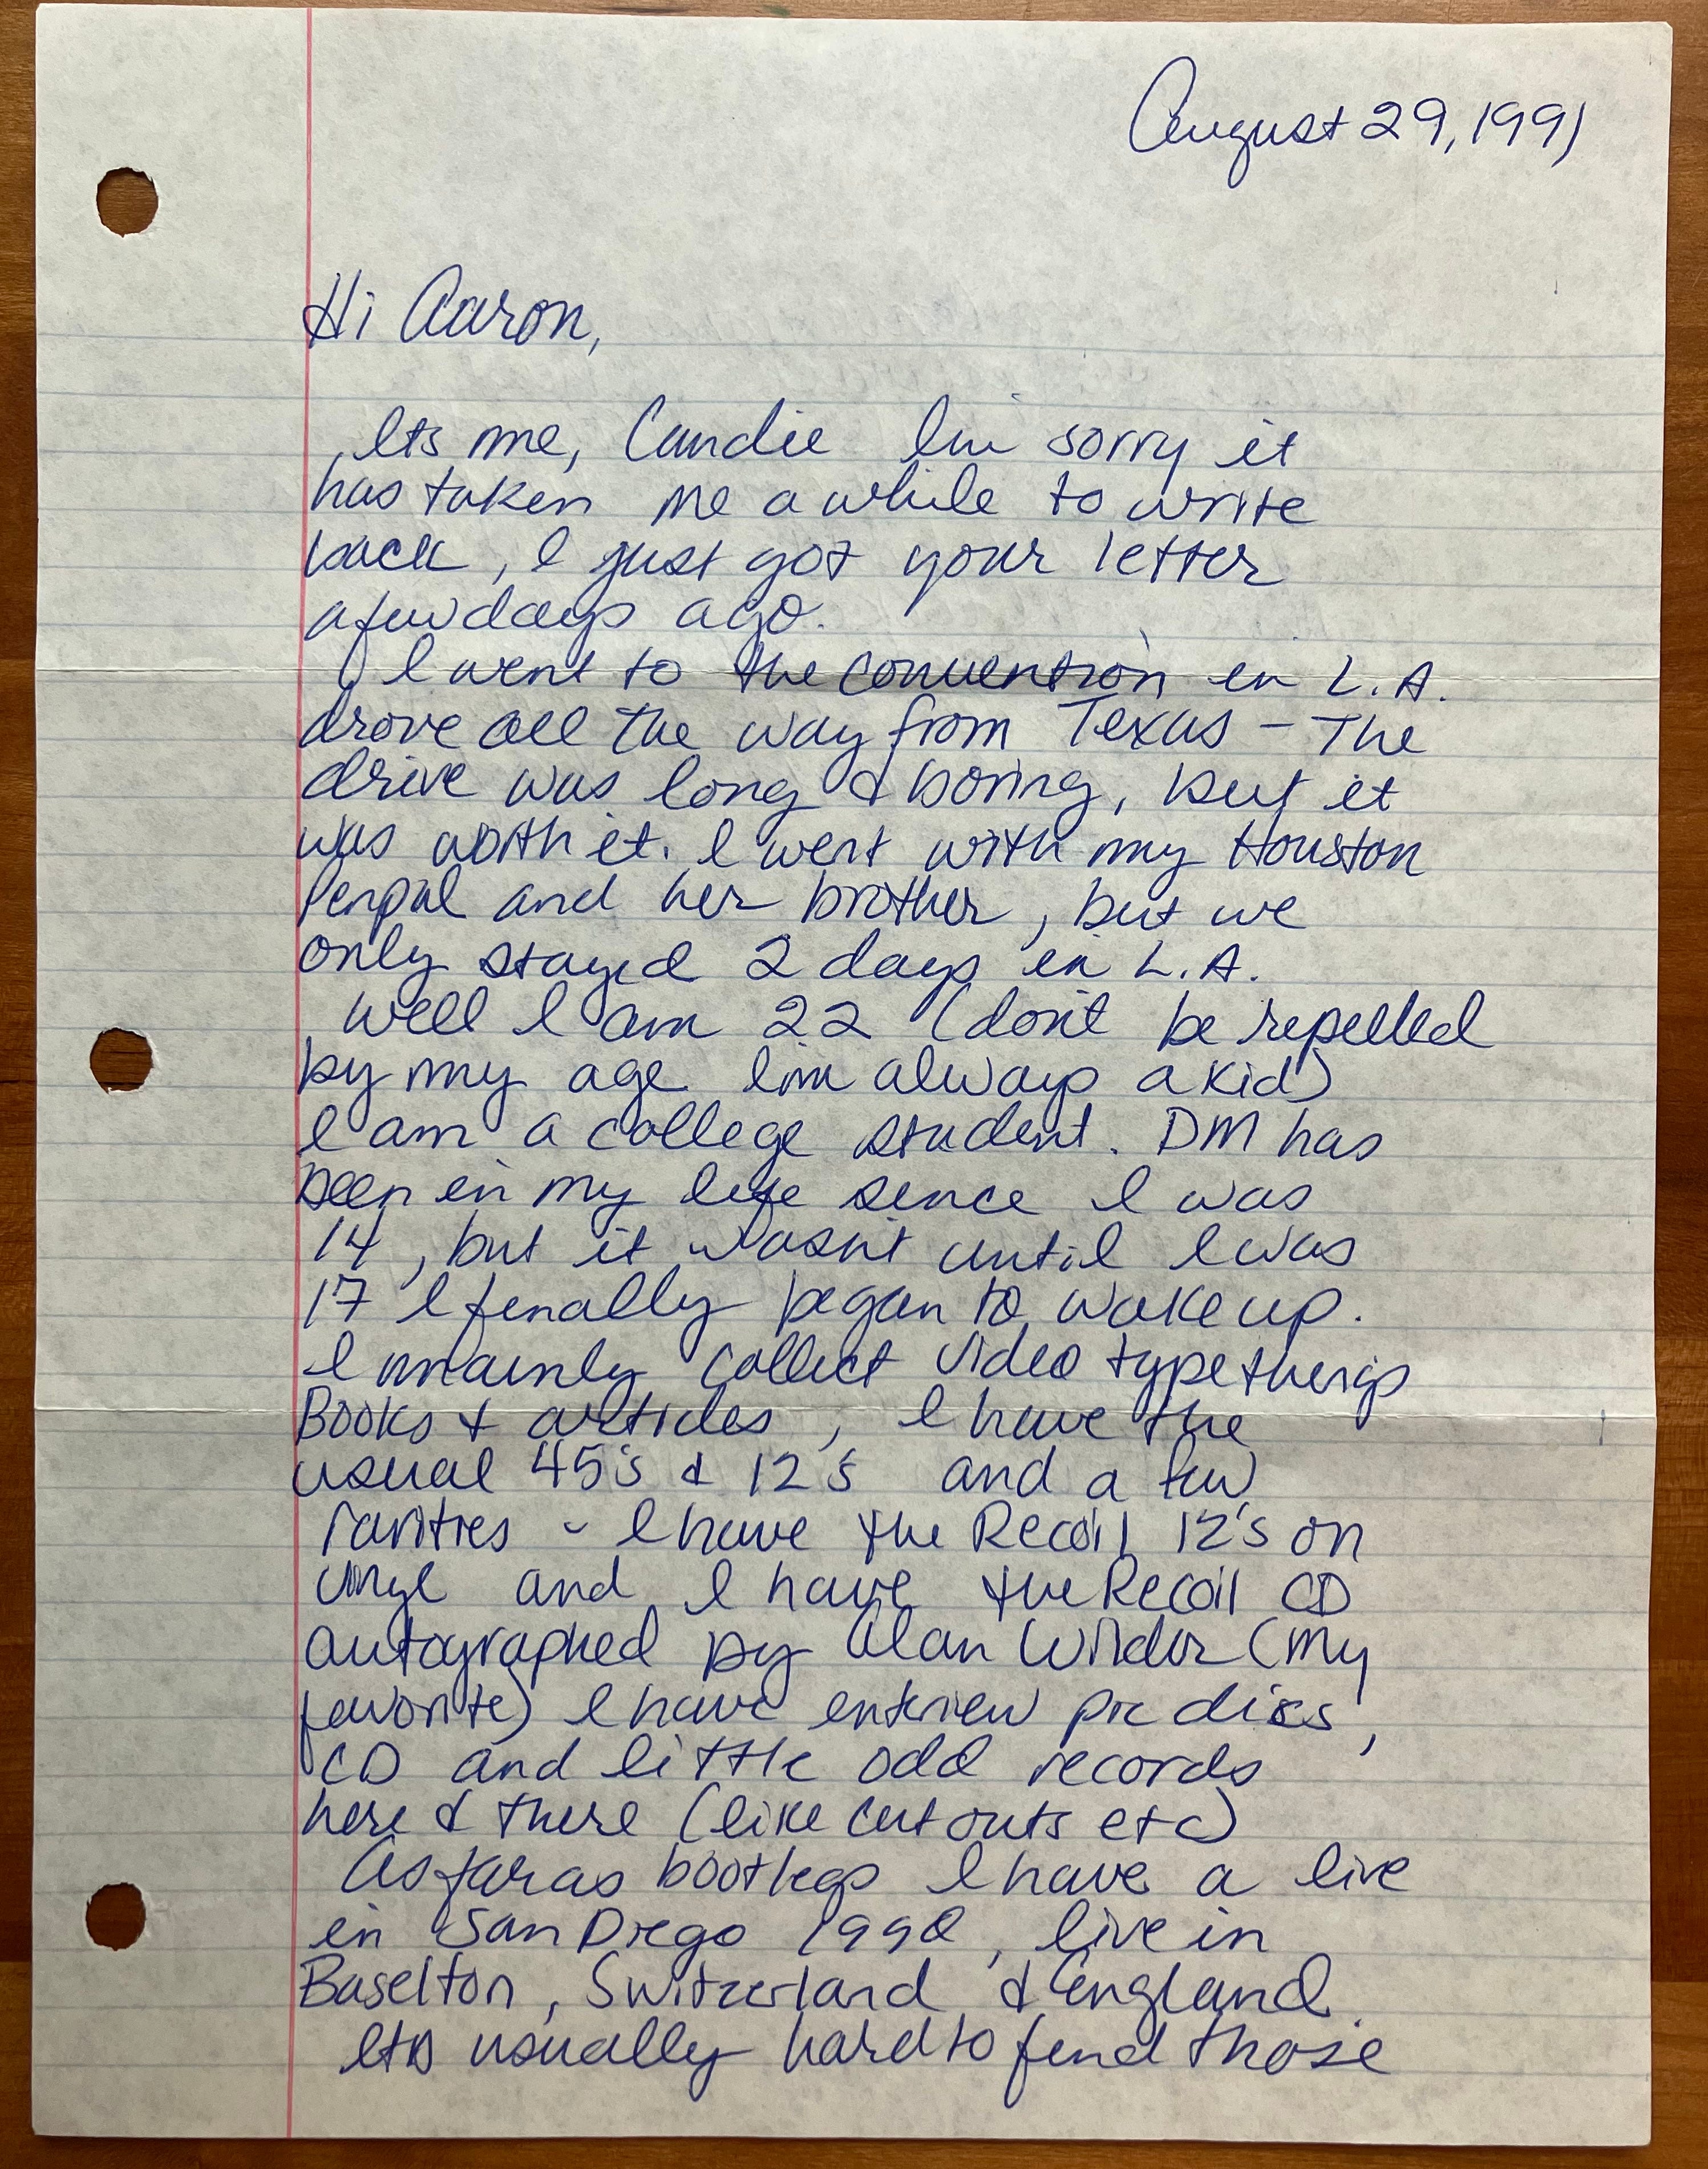 August 29, 1991
Hi Aaron,
Its me, Candie I'm sorry it
has taken me a while to write
back, I just got your letter
a few days ago.
I went to the convention in L.A.
drove all the way from Texas - The
drive was long & boring, but it
was worth it. I went with my Houston
Penpal and her brother, but we
only stayed 2 days in L.A.
Well I am 22 (don't be repelled
by my age I'm always a kid)
I am a college student. DM has
been in my life since I was
14, but it wasn't until I was
17 I finally began to wake up.
I mainly collect video type things
Books & articles, I have the
usual 45's & 12's and a few
rarities - I have the Recoil 12's on
vinyl and I have the Recoil CD
autographed by Alan Wilder (my
favorite) I have interview pic discs,
CD and little odd records
here & there (like cut outs etc)
As far as bootlegs I have a live
in San Diego 1990, live in
Baselton, Switzerland, & England.
Its usually hard to find those